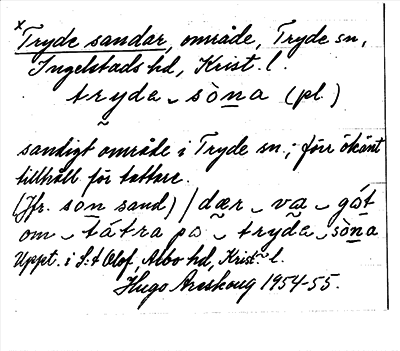 x Tryde sandar, område, Tryde sn,
Ingelstads hd, Krist. l.
tryda ‿ sòna (pl)
sandigt område i Tryde sn.; förr ökänt
tillhåll för tattare.
(Jfr. son sand) / dær ‿ va ‿ gót
om ‿ tátra pa ‿ tryda ‿ sòna
Uppt. i S:t Olof, Albo hd, Krist. l.
Hugo Areskoug 1954-55.